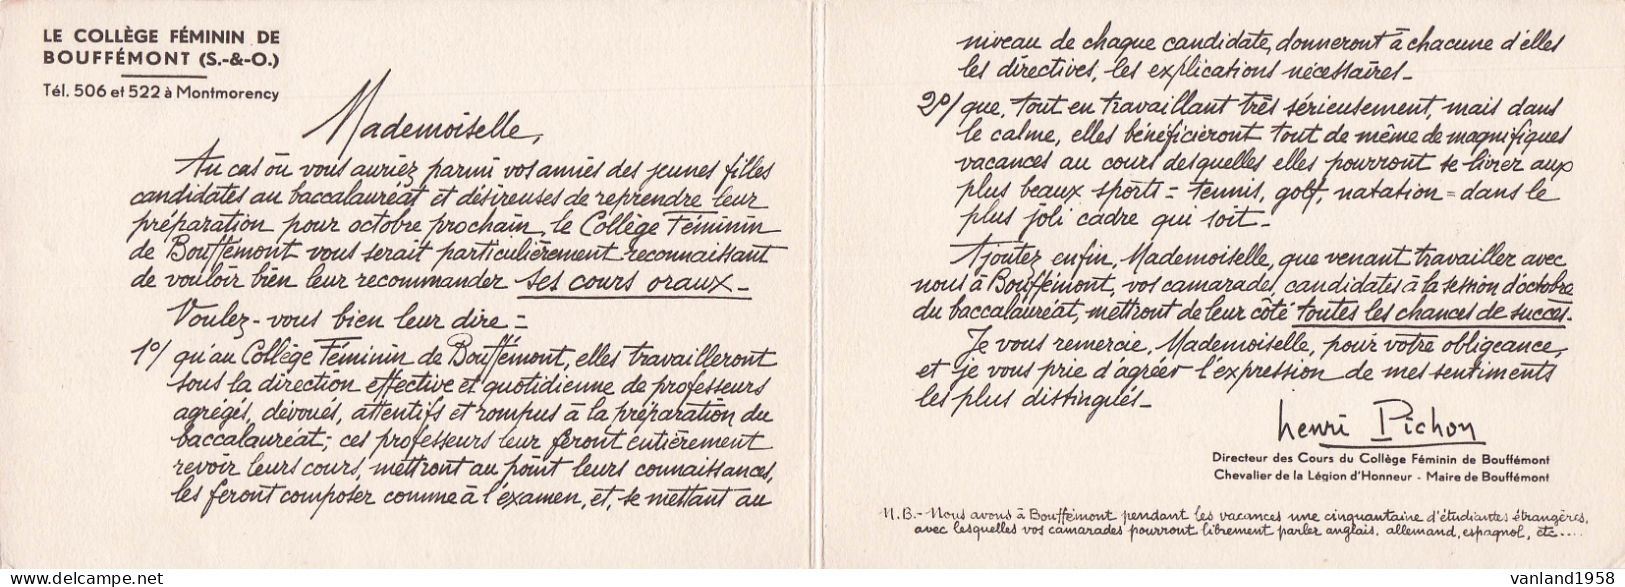 LE COLLÈGE FÉMININ DE
BOUFFÉMONT (S.-&-O.)
Tél. 506 et 522 à Montmorency
Mademoiselle,
Au cas où vous auriez parmi vos amies des jeunes filles
candidates au baccalauréat et désireuses de reprendre leur
préparation pour octobre prochain, le Collège Féminin
de Bouffémont vous serait particulièrement reconnaissant
de vouloir bien leur recommander ses cours oraux_
Voulez-vous bien leur dire =
1°/ qu'au Collège Féminin de Bouffémont, elles travailleront
sous la direction effective et quotidienne de professeurs
agrégés, dévoués, attentifs et rompus à la préparation du
baccalauréat; ces professeurs leur feront entièrement
revoir leurs cours, mettront au point leurs connaissances,
les feront composer comme à l'examen, et, se mettant au
niveau de chaque candidate, donneront à chacune d'elles
les directives, les explications nécessaires_
2°/ que, tout en travaillant très sérieusement, mais dans
le calme, elles bénéficieront tout de même de magnifiques
vacances au cours desquelles elles pourront se livrer aux
plus beaux sports = tennis, golf, natation = dans le
plus joli cadre qui soit_
Ajoutez enfin, Mademoiselle, que venant travailler avec
nous à Bouffémont, vos camarades, candidates à la session d'octobre
du baccalauréat, mettront de leur côté toutes les chances de succès.
Je vous remercie, Mademoiselle, pour votre obligeance,
et je vous prie d'agréer l'expression de mes sentiments
les plus distingués_
Henri Pichon
Directeur des Cours du Collège Féminin de Bouffémont
Chevalier de la Légion d'Honneur - Maire de Bouffémont
N.B.- Nous avons à Bouffémont pendant les vacances une cinquantaine d'étudiantes étrangères,
avec lesquelles vos camarades pourront librement parler anglais, allemand, espagnol, etc.....
vanland1958